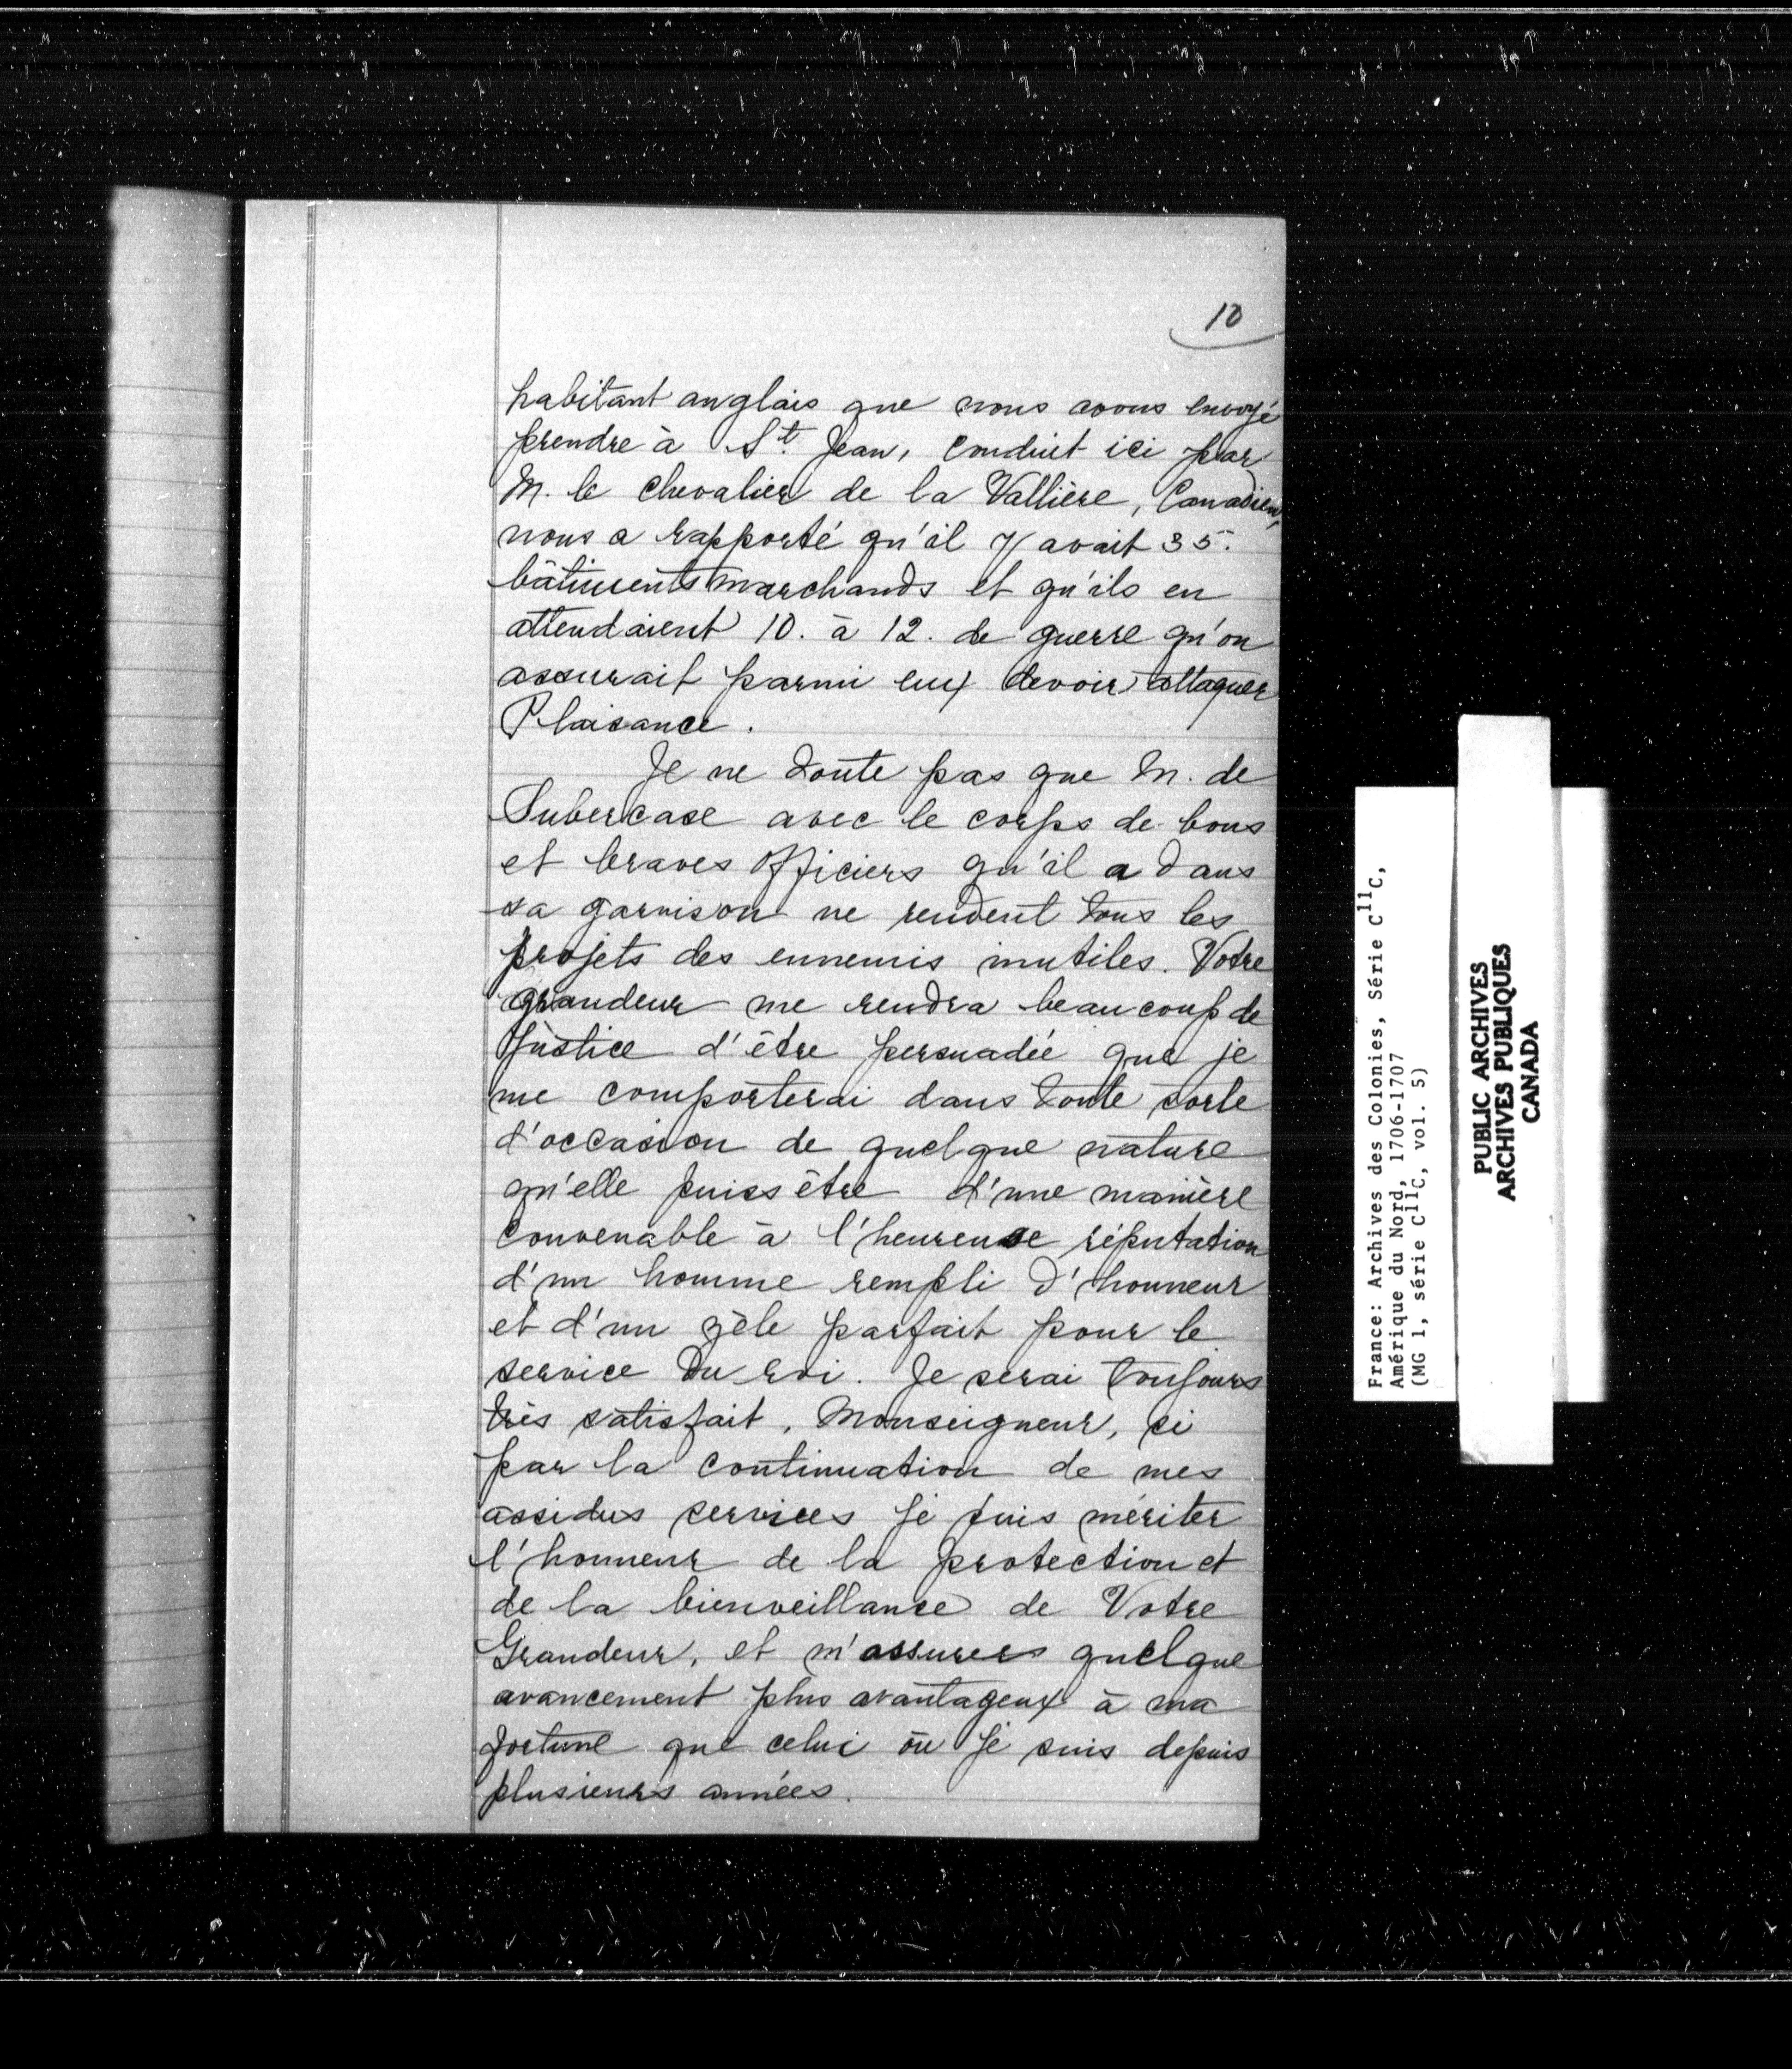 10
habitant anglais que nous avons envoyé
prendre à St. Jean, conduit ici par
M. le Chevalier de la Vallière, Canadien,
nous a rapporté qu'il y avait 35.
bâtiments marchands et qu'ils en
attendaient 10. à 12. de guerre qu'on
assurait parmi eux devoir attaquer
Plaisance.
Je ne doute pas que M. de
Subercase avec le corps de bons
et braves officiers qu'il a dans
sa garnison ne rendent tous les
projets des ennemis inutiles. Votre
grandeur me rendra beaucoup de
Justice d'être persuadée que je
me comporterai dans toute sorte
d'occasion de quelque nature
qu'elle puiss être d'une manière
convenable à l'heureuse réputation
d'un homme rempli d'honneur
et d'un zèle parfait pour le
service du roi. Je serai toujours
très satisfait, Monseigneur, si
par la continuation de mes
assidus services je puis mériter
l'honneur de la protection et
de la bienveillance de Votre
Grandeur, et m'assurer quelque
avancement plus avantageux à ma
fortune que celui où je suis depuis
plusieurs années.
France: Archives des Colonies, Série C11C,
Amérique du Nord, 1706-1707
(MG 1, série C11C, vol. 5)
PUBLIC ARCHIVES
ARCHIVES PUBLIQUES
CANADA